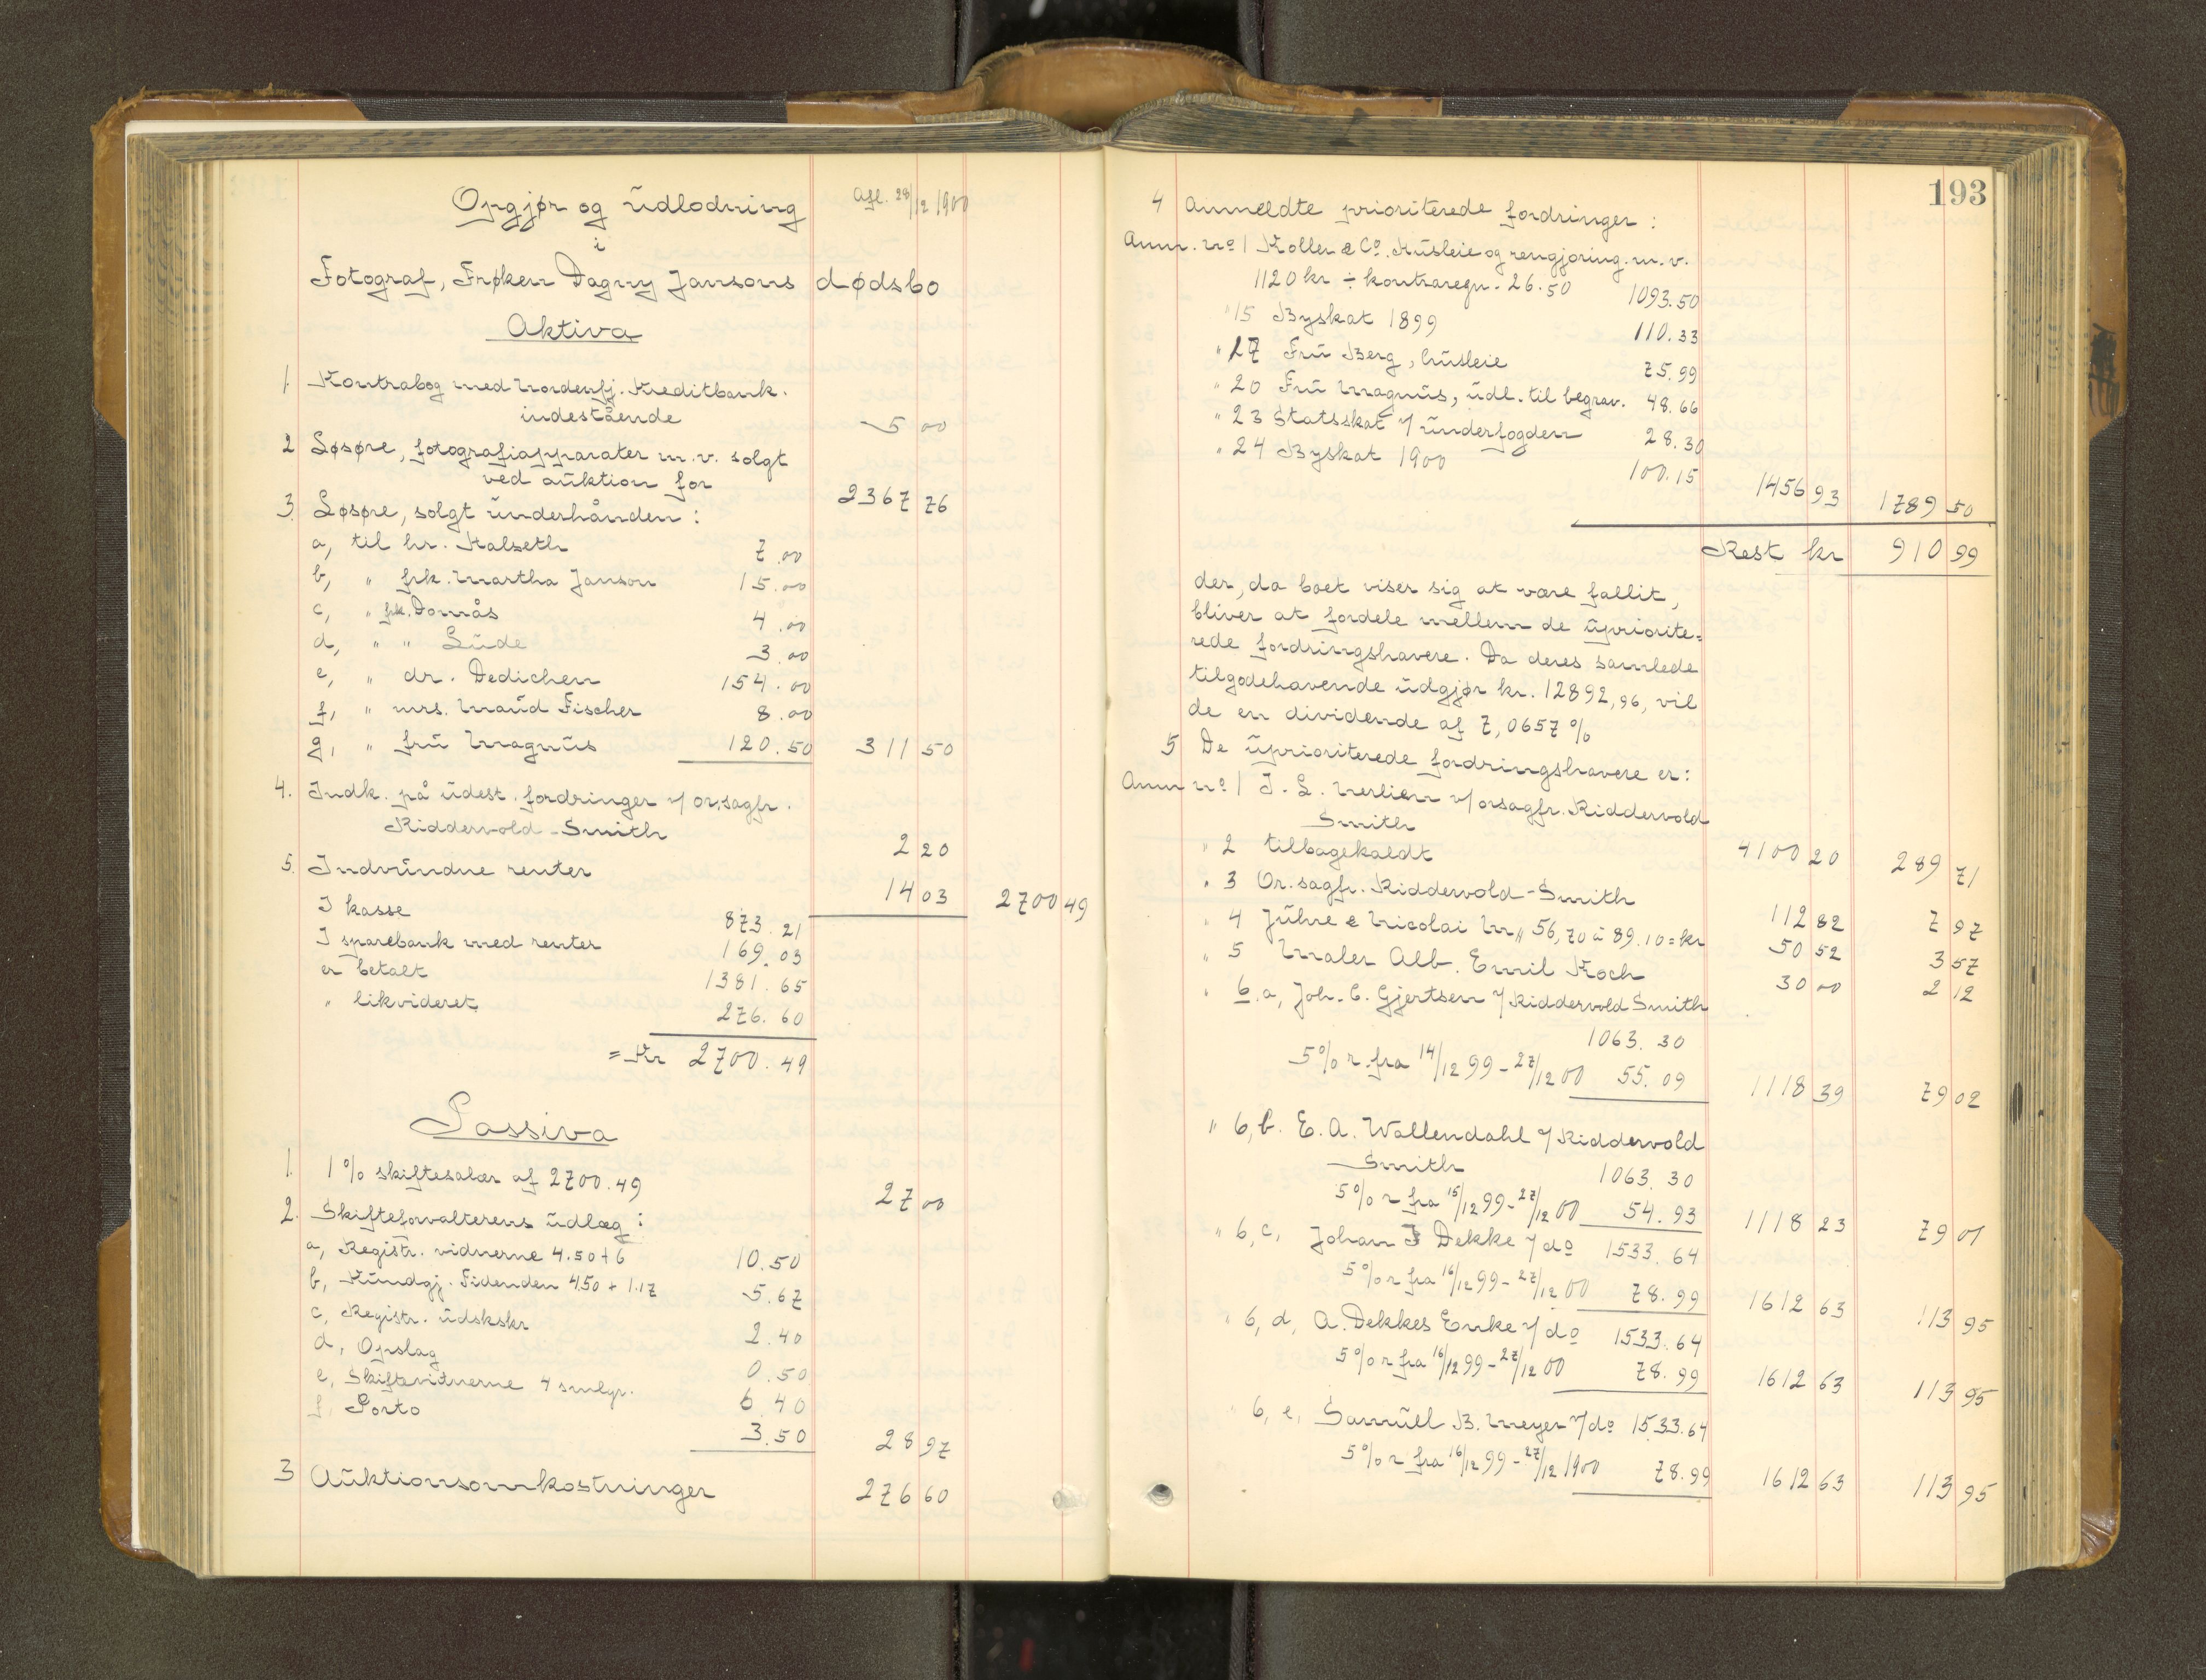 Opgjør og udlodning Afl. 28/12 1900
i
Fotograf, Frøken Dagny Jansons dødsbo
Aktiva
1. Kontrabog med Nordenfj. Kreditbank.
indestående 5 00
2 Løsøre, fotografiapparater m.v. solgt
ved auktion for 2367 76
3. Løsøre, solgt underhånden:
a, til hr. Halseth 7.00
b, " frk. Martha Janson 15.00
c, " frk. Domås 4.00
d, " " Lude 3.00
e, " dr. Dedichen 154.00
f, " mrs. Maud Fischer 8.00
g, " fru Magnus 120.50 311 50
4. Indk. på udest. fordringer v/ or.sagfr.
Riddervold-Smith 2 20
5. Indvundne renter 14 03 2700 49
I kasse 873.21
I sparebank med renter 169.03
er betalt 1381.65
" likvideret 276.60
= Kr 2700.49
Passiva
1. 1% skiftesalær af 2700.49 27 00
2. Skifteforvalterens udlæg:
a, Registr. vidnerne 4.50+6 10.50
b, Kundgj. Tidenden 4.50 + 1.17 5.67
c, Registr. udskskr 2.40
d, Opslag 0.50
e, Skiftevidnerne 4 smlgr. 6.40
f, Porto 3.50 28 97
3 Auktionsomkostninger 276 60
193
4 Anmeldte prioriterede fordringer:
Anm. no 1 Koller & Co. Husleie og rengjøring. m.v.
1120 kr ÷ kontraregn. 26.50 1093.50
" 15 Byskat 1899 110.33
" 17 Fru Berg, husleie 75.99
" 20 Fru Magnus, udl. til begrav. 48.66
" 23 Statsskat v/ underfogden 28.30
" 24 Byskat 1900 100.15 1456 93 1789 50
Rest kr 910 99
der, da boet viser sig at være fallit,
bliver at fordele mellem de upriorite=
rede fordringshavere. Da deres samlede
tilgodehavende udgjør kr. 12892,96, vil
de en dividende af 7,0657 %
5 De uprioriterede fordringshavere er:
Anm no 1 J. L. Nerlien v/ orsagfr. Riddervold
Smith 4100 20 289 71
" 2 tilbagekaldt
" 3 Or. sagfr. Riddervold-Smith 112 82 7 97
" 4 Juhre & Nicolai M„ 56,70 à 89.10 = kr 50 52 3 57
" 5 Maler Alb. Emil Koch 30 00 2 12
" 6.a, Joh. C. Gjertsen v/ Riddervold Smith
1063.30
5% r. fra 14/12 99 - 27/12 00 55.09 1118 39 79 02
" 6,b. E. A. Wallendahl v/ Riddervold
Smith 1063.30
5% r fra 15/12 99 - 27/12 00 54.93 1118 23 79 01
" 6,c, Johan J Dekke v/ do 1533.64
5% r fra 16/12 99 - 27/12 00 78.99 1612 63 113 95
" 6, d, A. Dekkes Enke v/ do 1533.64
5% r fra 16/12 99 - 27/12 00 78.99 1612 63 113 95
" 6, e, Samuel B. Meyer v/ do 1533.64
5% r fra 16/12 99 - 27/12 1900 78.99 1612 63 113 95